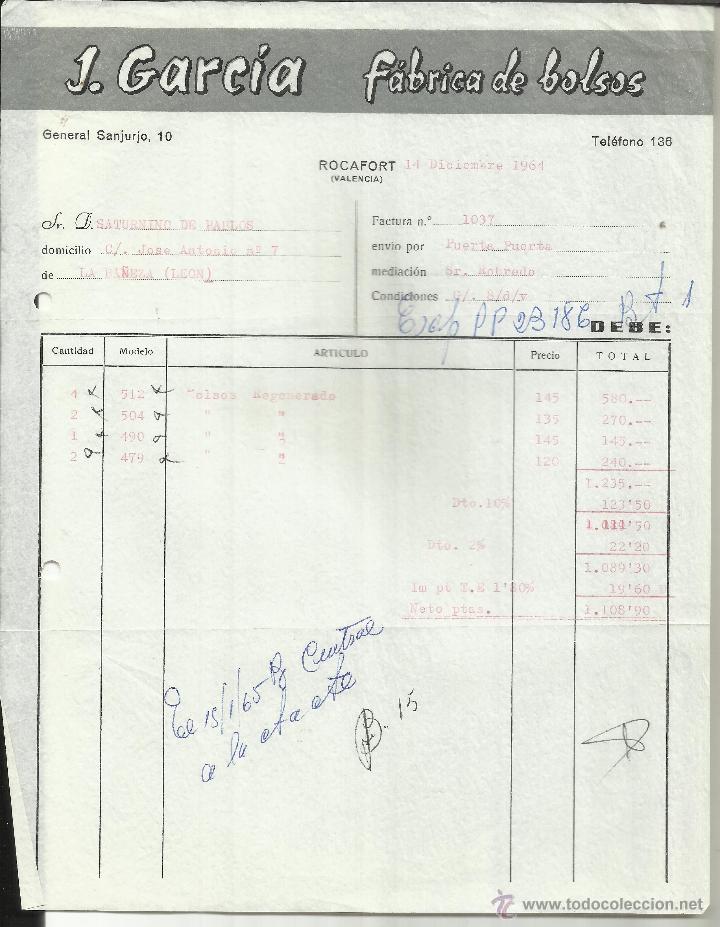 J. García fábrica de bolsos
General Sanjurjo, 10
Teléfono 136
ROCAFORT 14 Diciembre 1964
(VALENCIA)
Sr. D. SATURNINO DE PABLOS
domicilio C/. Jose Antonio nº 7
de LA BAÑEZA (LEON)
Factura n.º 1037
envio por Puerta Puerta
mediación Sr. Robredo
Condiciones
DEBE:
Cantidad Modelo ARTICULO Precio TOTAL
4 512 Bolsos Regenerado 145 580.--
2 504 " " 135 270.--
1 490 " " 145 145.--
2 479 " " 120 240.--
1.235.--
Dto.10% 123'50
1.111'50
Dto. 2% 22'20
1.089'30
Im pt T.E 1'80% 19'60
Neto ptas. 1.108'90
El 15/1/65 Central
a la cta cte
15
www.todocoleccion.net